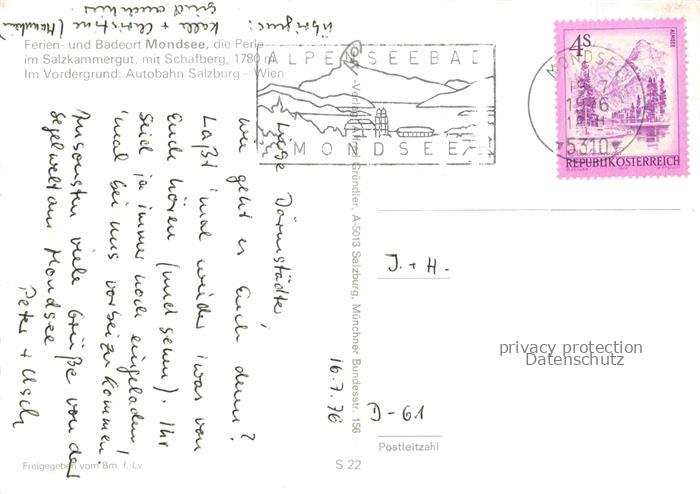 Übrigens:
Kalle + Christine (Mannheim)
sind auch hier
Ferien- und Badeort Mondsee, die Perle
im Salzkammergut, mit Schafberg, 1780 m
Im Vordergrund: Autobahn Salzburg – Wien
ALPENSEEBAD
MONDSEE
MONDSEE
1976
5310
ALMSEE
4S
REPUBLIK ÖSTERREICH
16.7.76
Liebe Darmstädter,
wie geht es Euch denn?
Laßt mal wieder 'was von
Euch hören (und sehen). Ihr
seid ja immer noch eingeladen,
'mal bei uns vorbeizukommen.
Ansonsten viele Grüße von der
Segelwelt am Mondsee
Peter + Usch
Verlag Alfred Gründler, A-5013 Salzburg, Münchner Bundesstr. 156
J. + H.
privacy protection
Datenschutz
D-61
Postleitzahl
Freigegeben vom Bm. f. Lv
S 22